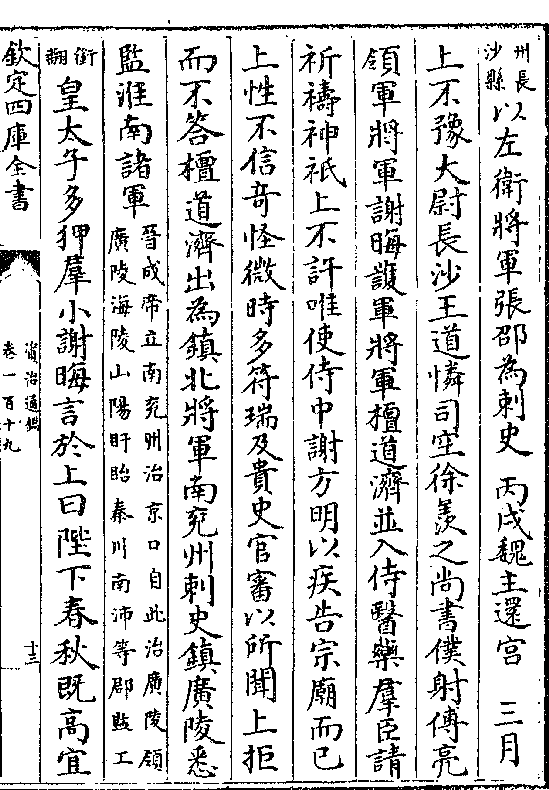 州長
沙縣
以左衛將軍張邵為刺史　丙戌魏主還宮　三月
上不豫太尉長沙王道憐司空徐羨之尚書僕射傅亮
領軍將軍謝晦護軍將軍檀道濟並入侍醫藥羣臣請
祈禱神祇上不許唯使侍中謝方明以疾告宗廟而已
上性不信竒怪微時多符瑞及貴史官審以所聞上拒
而不答檀道濟出為鎮北將軍南兖州刺史鎮廣陵悉
監淮南諸軍
晉成帝立南兖州治京口自此治廣陵領
廣陵海陵山陽盱眙秦川南沛等郡監工
銜
翻
皇太子多狎羣小謝晦言於上曰陛下春秋既高宜
欽定四庫全書
資治通鑑
卷一百十九
十三